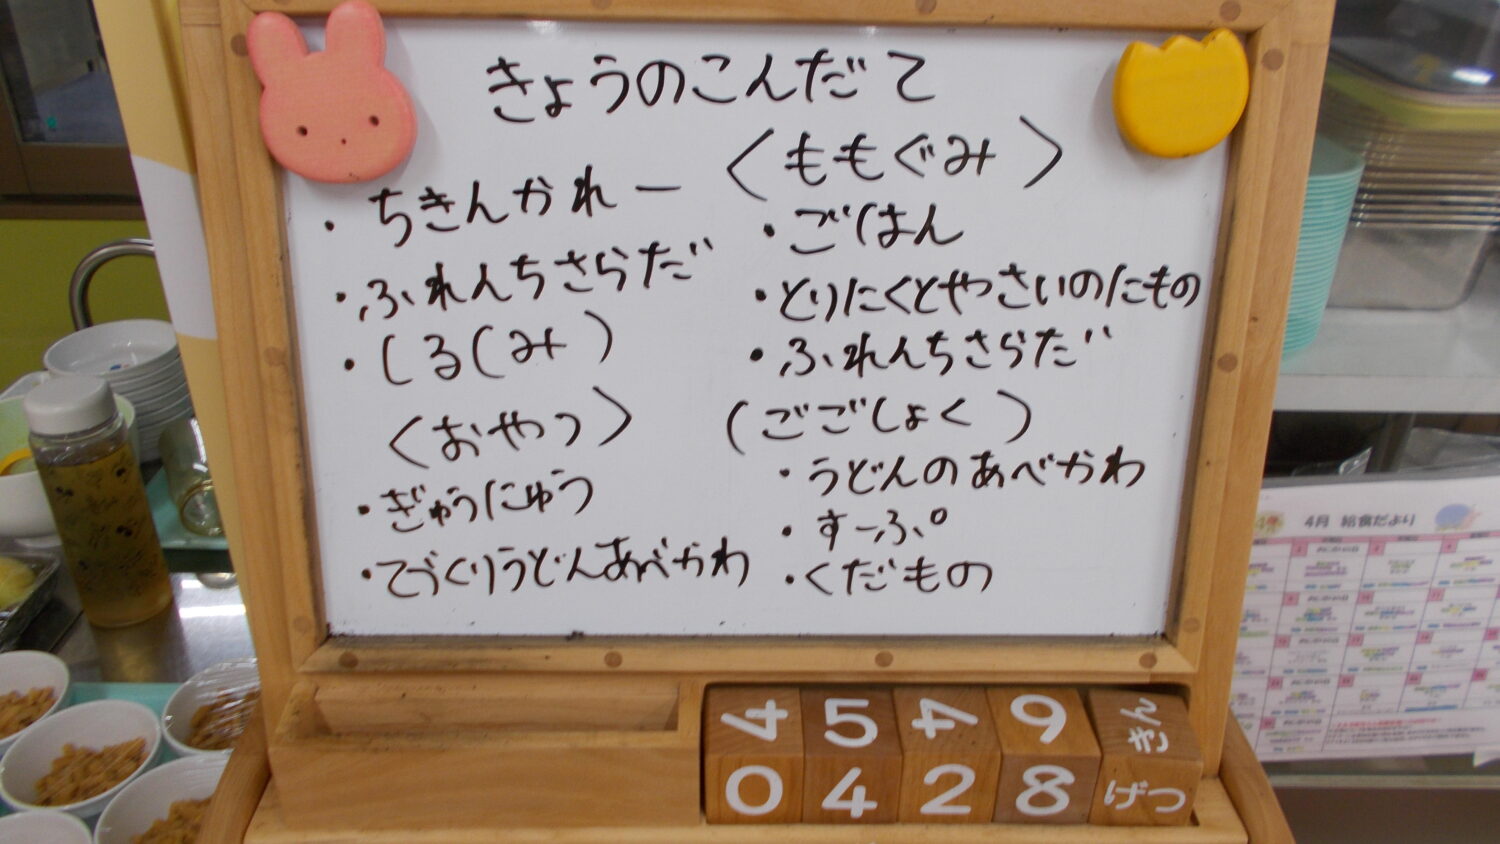 きょうのこんだて
・ちきんかれー
・ふれんちさらだ
・しる(みみ)
〈おやつ〉
・ぎゅうにゅう
・てづくりうどんあべかわ
〈ももぐみ〉
・ごはん
・とりにくとやさいのたもの
・ふれんちさらだ
(ごごしょく)
・うどんのあべかわ
・すーぷ
・くだもの
4 5 4 6 きん
0 4 2 8 げつ
4月 給食だより